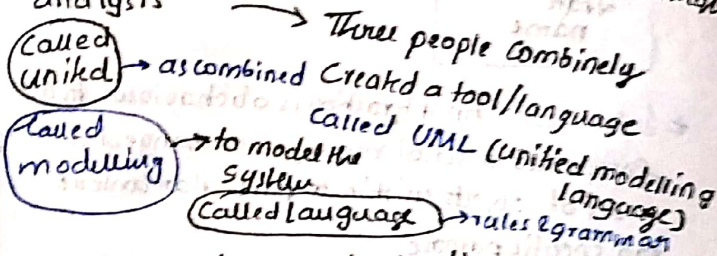 analysis
→ Three people combinely
Called united → as combined Created a tool/language
called UML (unified modelling language)
Called modelling → to model the system
Called language → rules & grammar